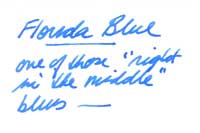 Florida Blue
one of those "right
in the middle"
blues —